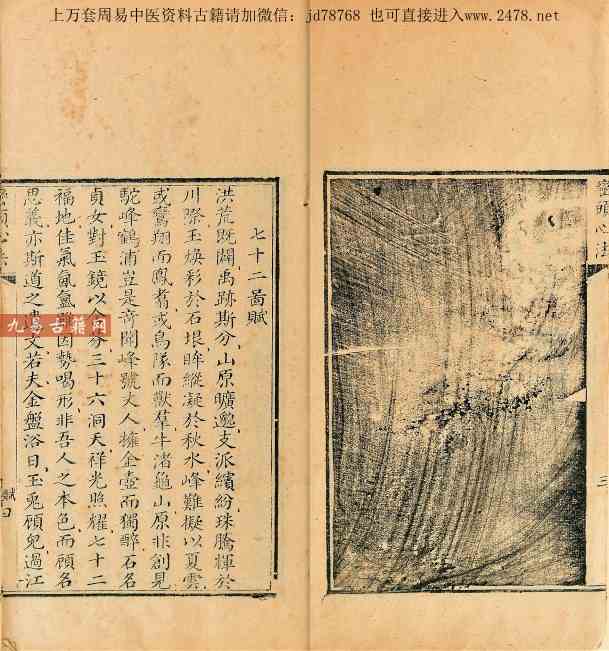 上万套周易中医资料古籍请加微信：jd78768 也可直接进入www.2478.net
頭心法
三
七十二啚賦
洪荒既闢禹跡斯分山原曠邈支派繽紛珠騰輝於
川際玉煥彩於石垠眸縱凝於秋水峰難擬以夏雲
或鸞翔而鳳翥或鳥隊而獸羣牛渚龜山原非創見
駝峰鶴浦豈是奇聞峰號丈人擁金壺而獨醉石名
貞女對玉鏡以芬三十六洞天祥光照耀七十二
福地佳氣氤氳因勢喝形非吾人之本色而顧名
思義亦斯道之文若夫金盤浴日玉兔顧兒過江
頭心
賦
九易古籍网